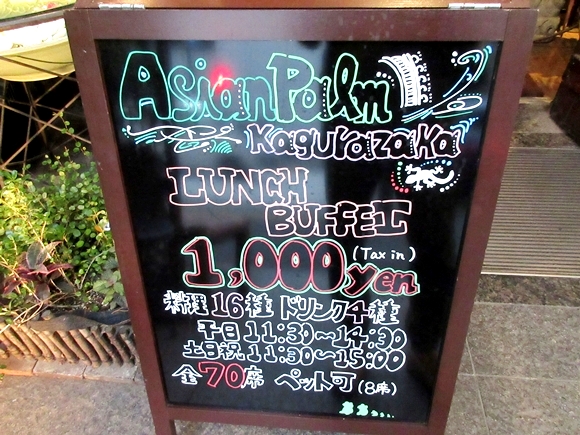 Asian Palm
Kagurazaka
LUNCH
BUFFET
1,000yen (Tax in)
料理16種 ドリンク4種
平日11:30〜14:30
土日祝11:30〜15:00
全70席 ペット可(8席)